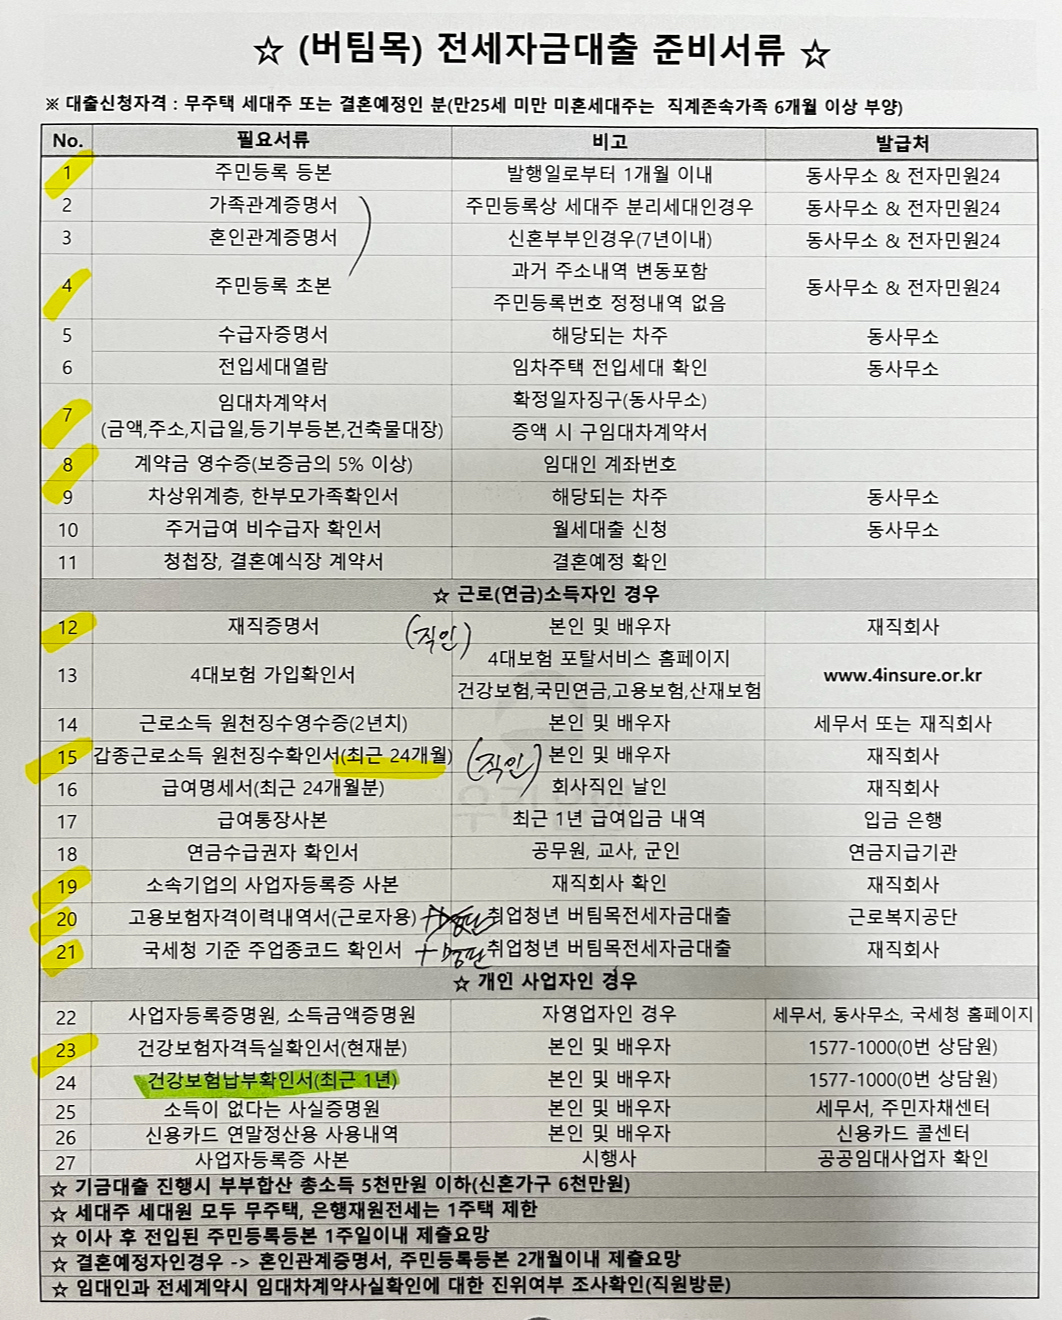 ☆ (버팀목) 전세자금대출 준비서류 ☆
※ 대출신청자격 : 무주택 세대주 또는 결혼예정인 분(만25세 미만 미혼세대주는 직계존속가족 6개월 이상 부양)
No. 필요서류 비고 발급처
1 주민등록 등본 발행일로부터 1개월 이내 동사무소 & 전자민원24
2 가족관계증명서 주민등록상 세대주 분리세대인경우 동사무소 & 전자민원24
3 혼인관계증명서 신혼부부인경우(7년이내) 동사무소 & 전자민원24
4 주민등록 초본 과거 주소내역 변동포함 동사무소 & 전자민원24
주민등록번호 정정내역 없음
5 수급자증명서 해당되는 차주 동사무소
6 전입세대열람 임차주택 전입세대 확인 동사무소
7 임대차계약서 확정일자징구(동사무소)
(금액,주소,지급일,등기부등본,건축물대장) 증액 시 구임대차계약서
8 계약금 영수증(보증금의 5% 이상) 임대인 계좌번호
9 차상위계층, 한부모가족확인서 해당되는 차주 동사무소
10 주거급여 비수급자 확인서 월세대출 신청 동사무소
11 청첩장, 결혼예식장 계약서 결혼예정 확인
☆ 근로(연금)소득자인 경우
12 재직증명서 (직인) 본인 및 배우자 재직회사
13 4대보험 가입확인서 4대보험 포탈서비스 홈페이지 www.4insure.or.kr
건강보험,국민연금,고용보험,산재보험
14 근로소득 원천징수영수증(2년치) 본인 및 배우자 세무서 또는 재직회사
15 갑종근로소득 원천징수확인서(최근 24개월) (직인) 본인 및 배우자 재직회사
16 급여명세서(최근 24개월분) 회사직인 날인 재직회사
17 급여통장사본 최근 1년 급여입금 내역 입금 은행
18 연금수급권자 확인서 공무원, 교사, 군인 연금지급기관
19 소속기업의 사업자등록증 사본 재직회사 확인 재직회사
20 고용보험자격이력내역서(근로자용) 취업청년 버팀목전세자금대출 근로복지공단
21 국세청 기준 주업종코드 확인서 + 명판 취업청년 버팀목전세자금대출 재직회사
☆ 개인 사업자인 경우
22 사업자등록증명원, 소득금액증명원 자영업자인 경우 세무서, 동사무소, 국세청 홈페이지
23 건강보험자격득실확인서(현재분) 본인 및 배우자 1577-1000(0번 상담원)
24 건강보험납부확인서(최근 1년) 본인 및 배우자 1577-1000(0번 상담원)
25 소득이 없다는 사실증명원 본인 및 배우자 세무서, 주민자채센터
26 신용카드 연말정산용 사용내역 본인 및 배우자 신용카드 콜센터
27 사업자등록증 사본 시행사 공공임대사업자 확인
☆ 기금대출 진행시 부부합산 총소득 5천만원 이하(신혼가구 6천만원)
☆ 세대주 세대원 모두 무주택, 은행재원전세는 1주택 제한
☆ 이사 후 전입된 주민등록등본 1주일이내 제출요망
☆ 결혼예정자인경우 -> 혼인관계증명서, 주민등록등본 2개월이내 제출요망
☆ 임대인과 전세계약시 임대차계약사실확인에 대한 진위여부 조사확인(직원방문)